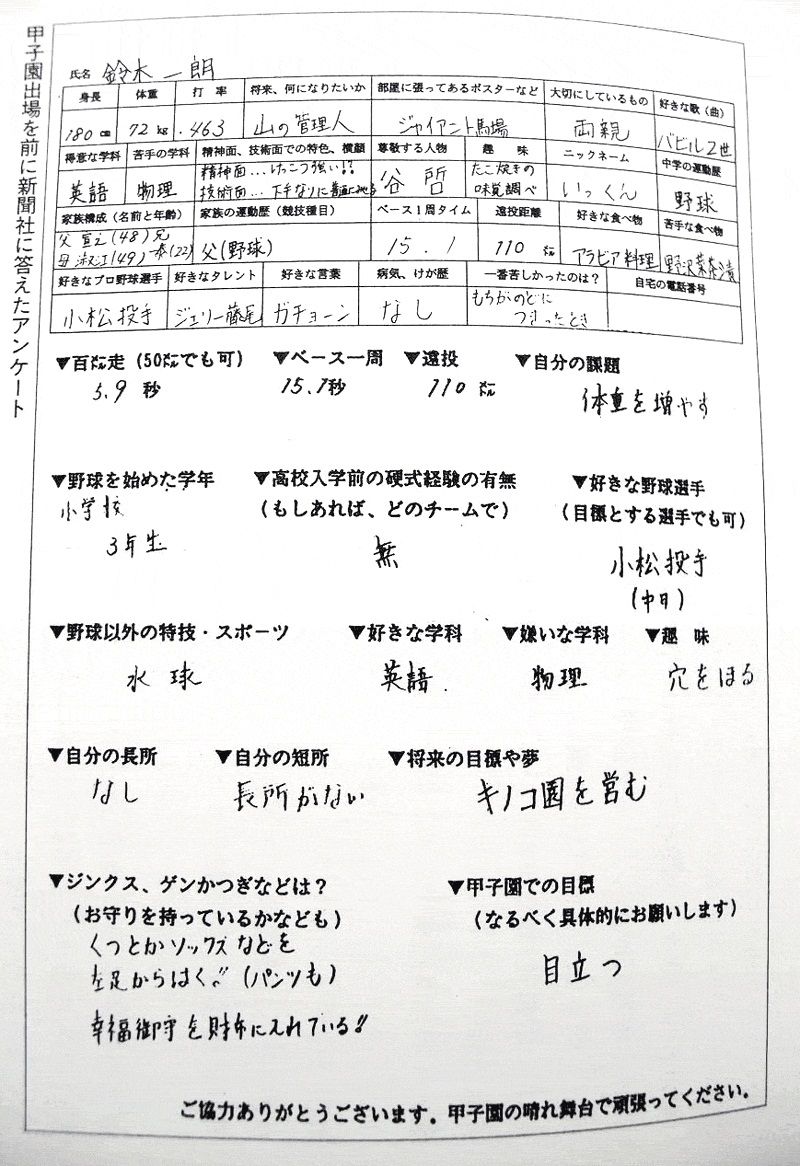 甲子園出場を前に新聞社に答えたアンケート
氏名 鈴木一朗
身長 体重 打率 将来、何になりたいか 部屋に張ってあるポスターなど 大切にしているもの 好きな歌(曲)
180cm 72kg .463 山の管理人 ジャイアント馬場 両親 バビル2世
得意な学科 苦手の学科 精神面、技術面での特色、横顔 尊敬する人物 趣味 ニックネーム 中学の運動歴
英語 物理 精神面…けっこう強い!! 谷哲 たこ焼きの いっくん 野球
技術面…下手なりに 味覚調べ
家族構成(名前と年齢) 家族の運動歴(競技種目) ベース1周タイム 遠投距離 好きな食べ物 苦手な食べ物
父 宣之(48) 兄 父(野球) 15.1 110㍍ アラビア料理 野沢菜茶漬
母 淑江(49) 一泰(22)
好きなプロ野球選手 好きなタレント 好きな言葉 病気、けが歴 一番苦しかったのは? 自宅の電話番号
小松投手 ジェリー藤尾 ガチョーン なし もちがのどに
つまったとき
▼百㍍走(50㍍でも可) ▼ベース一周 ▼遠投 ▼自分の課題
5.9秒 15.1秒 110㍍ 体重を増やす
▼野球を始めた学年 ▼高校入学前の硬式経験の有無 ▼好きな野球選手
小学校 (もしあれば、どのチームで) (目標とする選手でも可)
3年生 無 小松投手
(中日)
▼野球以外の特技・スポーツ ▼好きな学科 ▼嫌いな学科 ▼趣味
水球 英語. 物理 穴をほる
▼自分の長所 ▼自分の短所 ▼将来の目標や夢
なし 長所がない キノコ園を営む
▼ジンクス、ゲンかつぎなどは? ▼甲子園での目標
(お守りを持っているかなども) (なるべく具体的にお願いします)
くつとかソックスなどを 目立つ
左足からはく!! (パンツも)
幸福御守を財布に入れている!!
ご協力ありがとうございます。甲子園の晴れ舞台で頑張ってください。